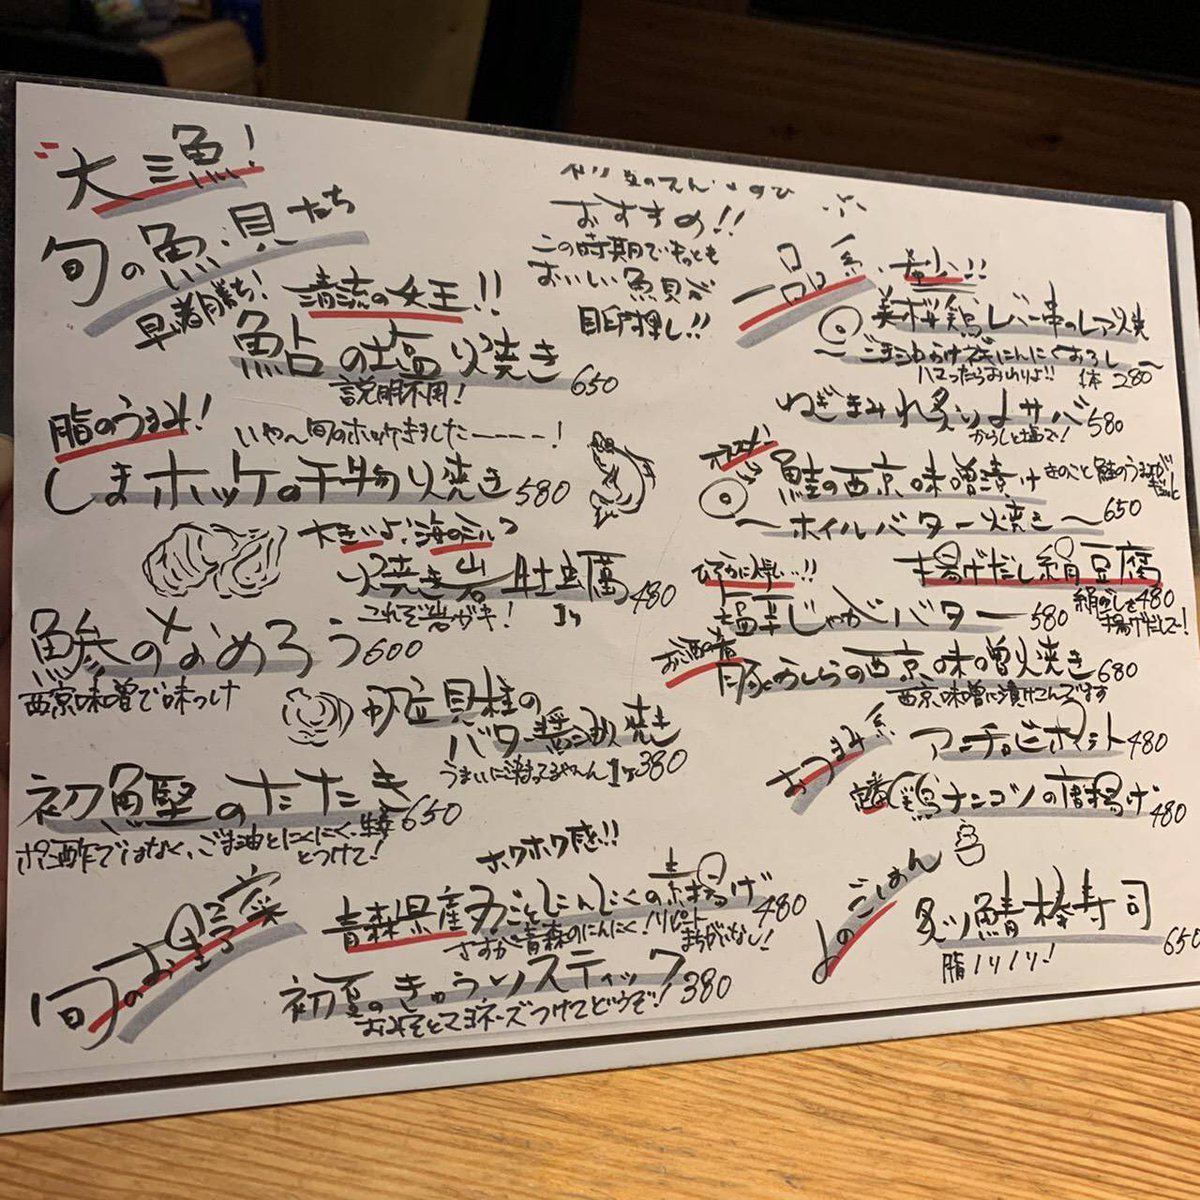 大漁!
旬の魚・貝たち
早い者勝ち!
清流の女王!!
鮎の塩焼き 650
説明不用!
おすすめ!!
この時期でもっとも
おいしい魚貝が
目白押し!!
脂のうまみ!
いやん旬のホッケきましたーーーー!
しまホッケの干物焼き 580
大きいよ!海のミルク
焼き岩牡蠣 480
これぞ岩ガキ!
鯵のなめろう 600
西京味噌で味つけ
帆立貝柱の
バター醤油焼き
うまいに決まってるやん 1ヶ 380
初鰹のたたき 650
ポン酢ではなく、ごま油とにんにく、生姜
とつけて!
旬のお野菜
ホクホク感を!!
青森県産丸ごとにんにくの素揚げ 480
さすが青森のにんにく!リピート
まちがいなし!
初夏のきゅうりスティック 380
おみそとマヨネーズつけてどうぞ!
一品系
美桜鶏レバー串のレア焼
〜ごま油かけ にんにくおろし〜
ハマったらおかわりよ!! 1本 280
ねぎまみれ炙り〆サバ 580
からしと塩で!
鮭の西京味噌漬け
きのこと鮭のうまみが
〜ホイルバター焼き〜 650
揚げだし絹豆腐 480
絹ごしを
揚げだして!
塩辛じゃがバター 580
お酒の肴
豚かしらの西京味噌焼き 680
西京味噌に漬けこんでます
おつまみ系
アンチョビポテト 480
定番 鶏ナンコツの唐揚げ 480
〆のごはん
炙り鯖棒寿司 650
脂ノリノリ!